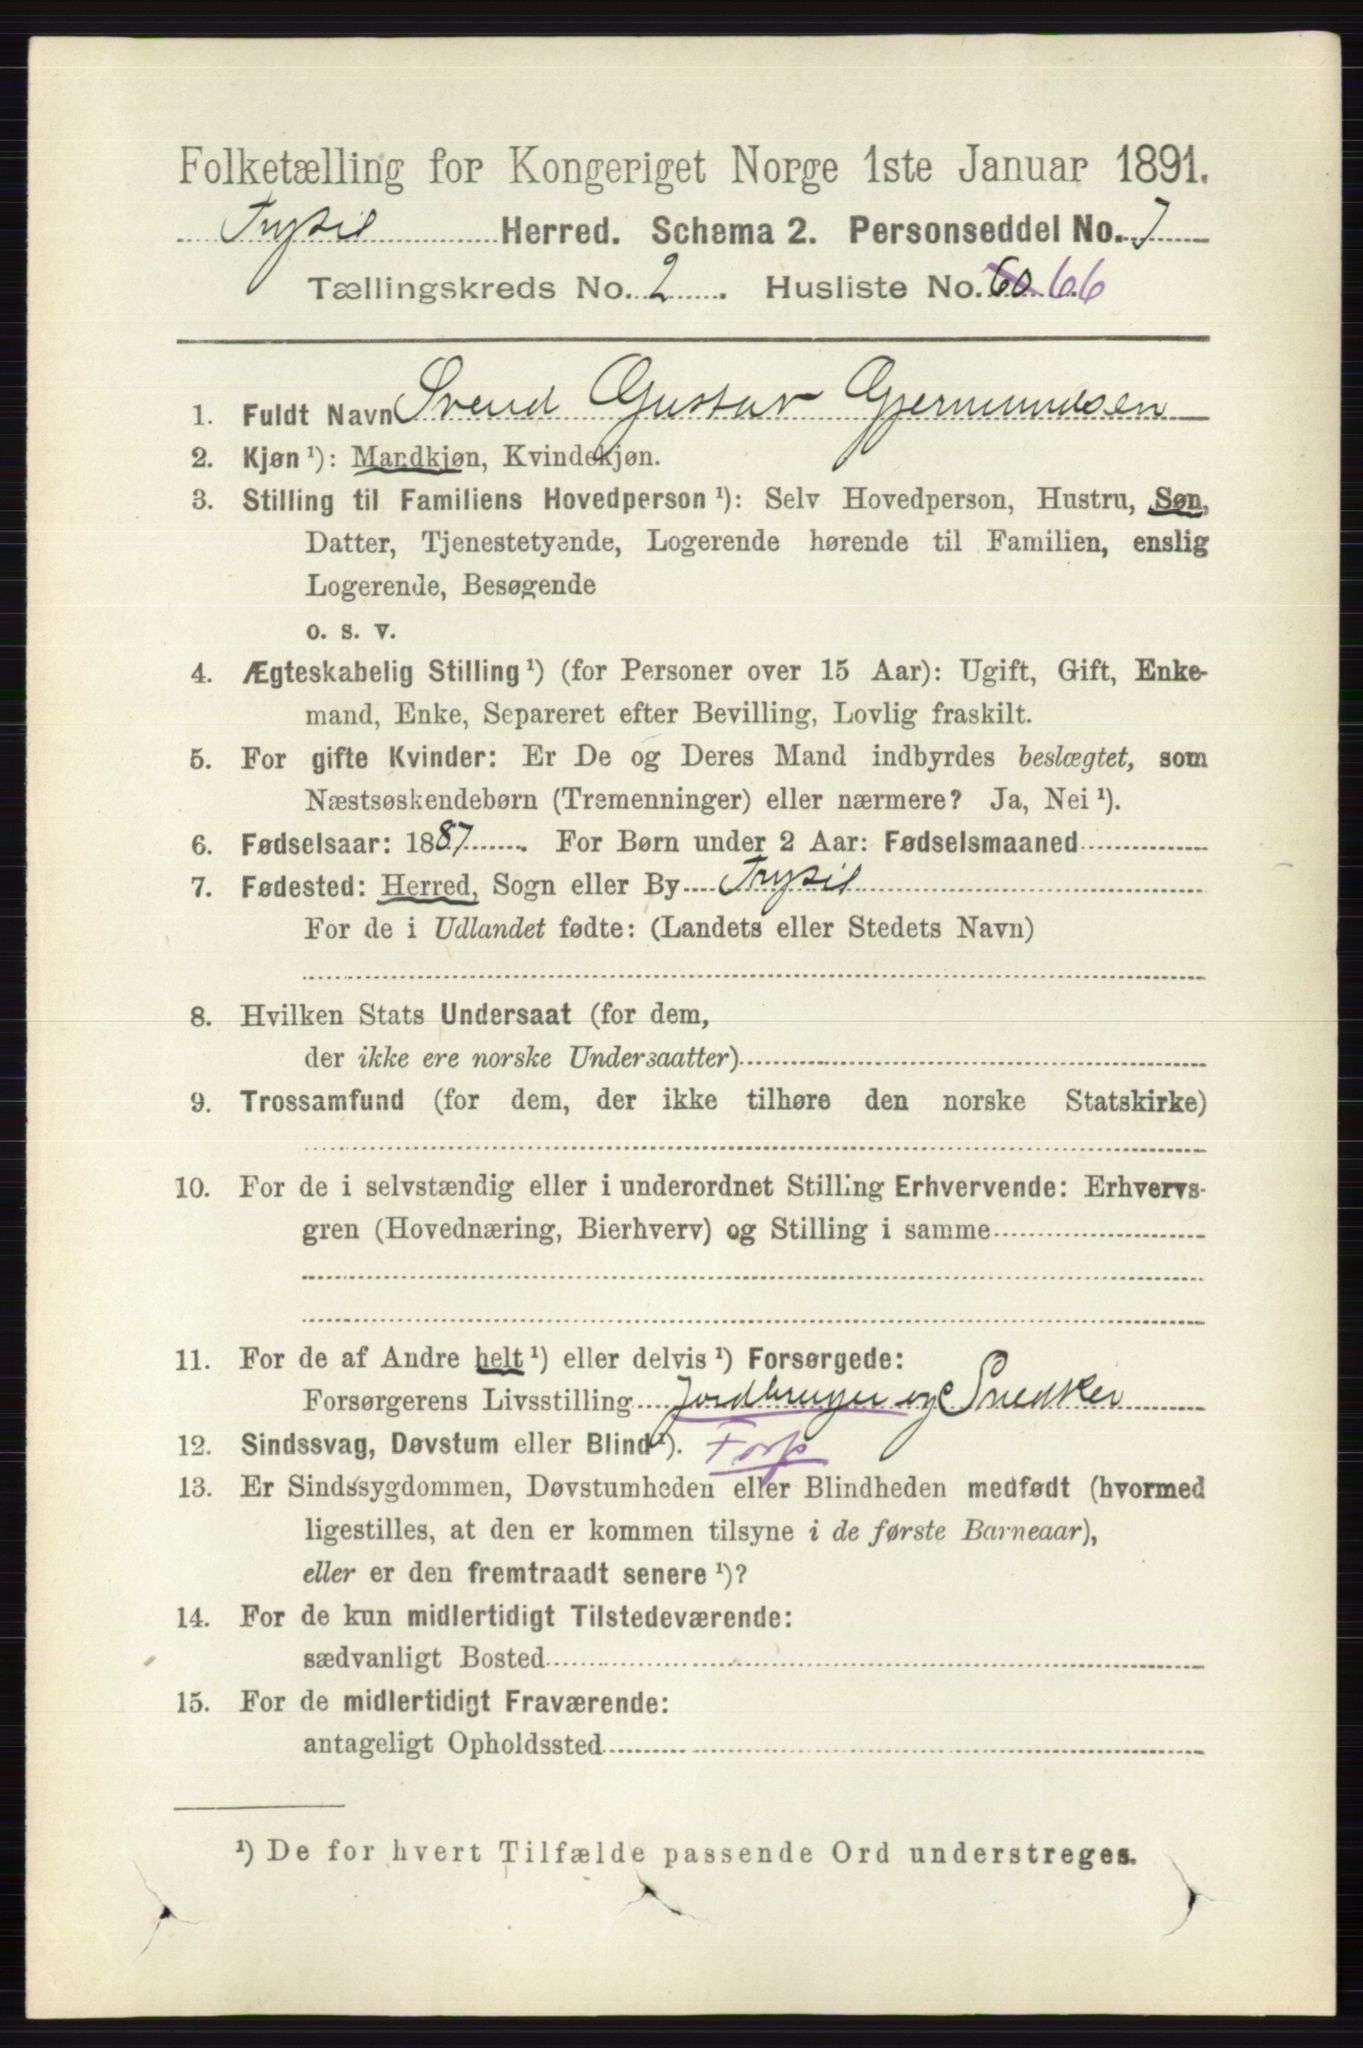 Folketælling for Kongeriget Norge 1ste Januar 1891.
Trysil Herred. Schema 2. Personseddel No. 7
Tællingskreds No. 2. Husliste No. 60 66
1. Fuldt Navn Svend Gustav Gjermundsen
2. Kjøn ¹): Mandkjøn, Kvindekjøn.
3. Stilling til Familiens Hovedperson ¹): Selv Hovedperson, Hustru, Søn,
Datter, Tjenestetyende, Logerende hørende til Familien, enslig
Logerende, Besøgende
o. s. v.
4. Ægteskabelig Stilling ¹) (for Personer over 15 Aar): Ugift, Gift, Enke-
mand, Enke, Separeret efter Bevilling, Lovlig fraskilt.
5. For gifte Kvinder: Er De og Deres Mand indbyrdes beslægtet, som
Næstsøskendebørn (Tremenninger) eller nærmere? Ja, Nei ¹).
6. Fødselsaar: 1887. For Børn under 2 Aar: Fødselsmaaned
7. Fødested: Herred, Sogn eller By Trysil
For de i Udlandet fødte: (Landets eller Stedets Navn)
8. Hvilken Stats Undersaat (for dem,
der ikke ere norske Undersaatter)
9. Trossamfund (for dem, der ikke tilhøre den norske Statskirke)
10. For de i selvstændig eller i underordnet Stilling Erhvervende: Erhvervs-
gren (Hovednæring, Bierhverv) og Stilling i samme
11. For de af Andre helt ¹) eller delvis ¹) Forsørgede:
Forsørgerens Livsstilling Jordbruger og Snedker
12. Sindssvag, Døvstum eller Blind ¹). Forp
13. Er Sindssygdommen, Døvstumheden eller Blindheden medfødt (hvormed
ligestilles, at den er kommen tilsyne i de første Barneaar),
eller er den fremtraadt senere ¹)?
14. For de kun midlertidigt Tilstedeværende:
sædvanligt Bosted
15. For de midlertidigt Fraværende:
antageligt Opholdssted
¹) De for hvert Tilfælde passende Ord understreges.